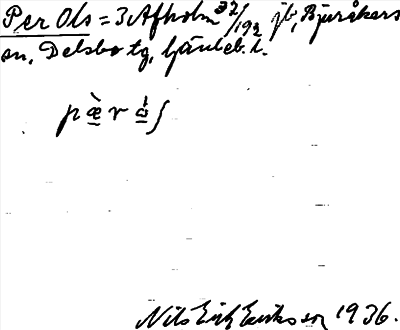 Per Ols = 3 Afholm 32/192 jb, Bjuråkers
sn, Delsbo tg, Gävleb. l.
pæ̀rɷ́ʃ
Nils Erik Eriksson 1936.